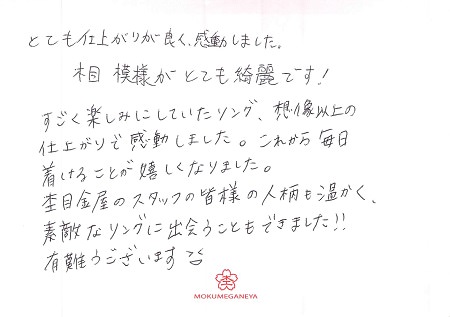 とても仕上がりが良く、感動しました。
木目模様がとても綺麗です!
すごく楽しみにしていたリング、想像以上の
仕上がりで感動しました。これから毎日
着けることが嬉しくなりました。
杢目金屋のスタッフの皆様の人柄も温かく、
素敵なリングに出会うこともできました!!
有難うございます
MOKUMEGANEYA